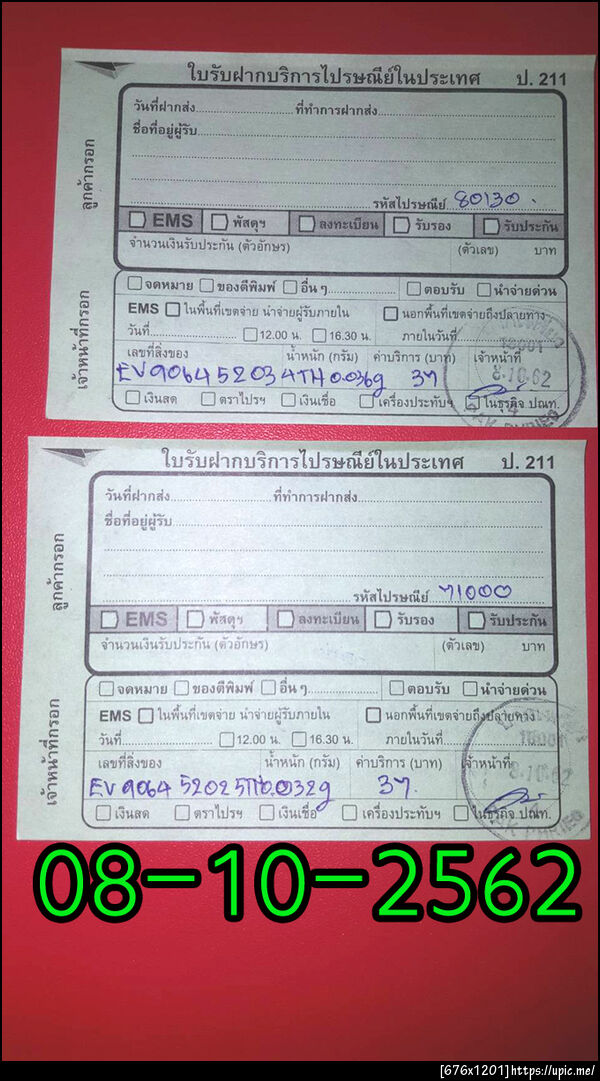 ใบรับฝากบริการไปรษณีย์ในประเทศ ป. 211
ลูกค้ากรอก
วันที่ฝากส่ง ที่ทำการฝากส่ง
ชื่อที่อยู่ผู้รับ
รหัสไปรษณีย์ 80130.
EMS พัสดุฯ ลงทะเบียน รับรอง รับประกัน
จำนวนเงินรับประกัน (ตัวอักษร) (ตัวเลข) บาท
เจ้าหน้าที่กรอก
จดหมาย ของตีพิมพ์ อื่น ๆ ตอบรับ นำจ่ายด่วน
EMS ในพื้นที่เขตจ่าย นำจ่ายผู้รับภายใน นอกพื้นที่เขตจ่ายถึงปลายทาง
วันที่ 12.00 น. 16.30 น. ภายในวันที่
เลขที่สิ่งของ น้ำหนัก (กรัม) ค่าบริการ (บาท) เจ้าหน้าที่
EV 9064 5203 4TH 0.036g 37
8.10.62
เงินสด ตราไปรฯ เงินเชื่อ เครื่องประทับฯ ในธุรกิจ ปณท.
ใบรับฝากบริการไปรษณีย์ในประเทศ ป. 211
ลูกค้ากรอก
วันที่ฝากส่ง ที่ทำการฝากส่ง
ชื่อที่อยู่ผู้รับ
รหัสไปรษณีย์ 71000
EMS พัสดุฯ ลงทะเบียน รับรอง รับประกัน
จำนวนเงินรับประกัน (ตัวอักษร) (ตัวเลข) บาท
เจ้าหน้าที่กรอก
จดหมาย ของตีพิมพ์ อื่น ๆ ตอบรับ นำจ่ายด่วน
EMS ในพื้นที่เขตจ่าย นำจ่ายผู้รับภายใน นอกพื้นที่เขตจ่ายถึงปลายทาง
วันที่ 12.00 น. 16.30 น. ภายในวันที่
เลขที่สิ่งของ น้ำหนัก (กรัม) ค่าบริการ (บาท) เจ้าหน้าที่
EV 9064 5202 5TH 0.032g 37.
8.10.62
เงินสด ตราไปรฯ เงินเชื่อ เครื่องประทับฯ ในธุรกิจ ปณท.
08-10-2562
[676x1201]https://upic.me/